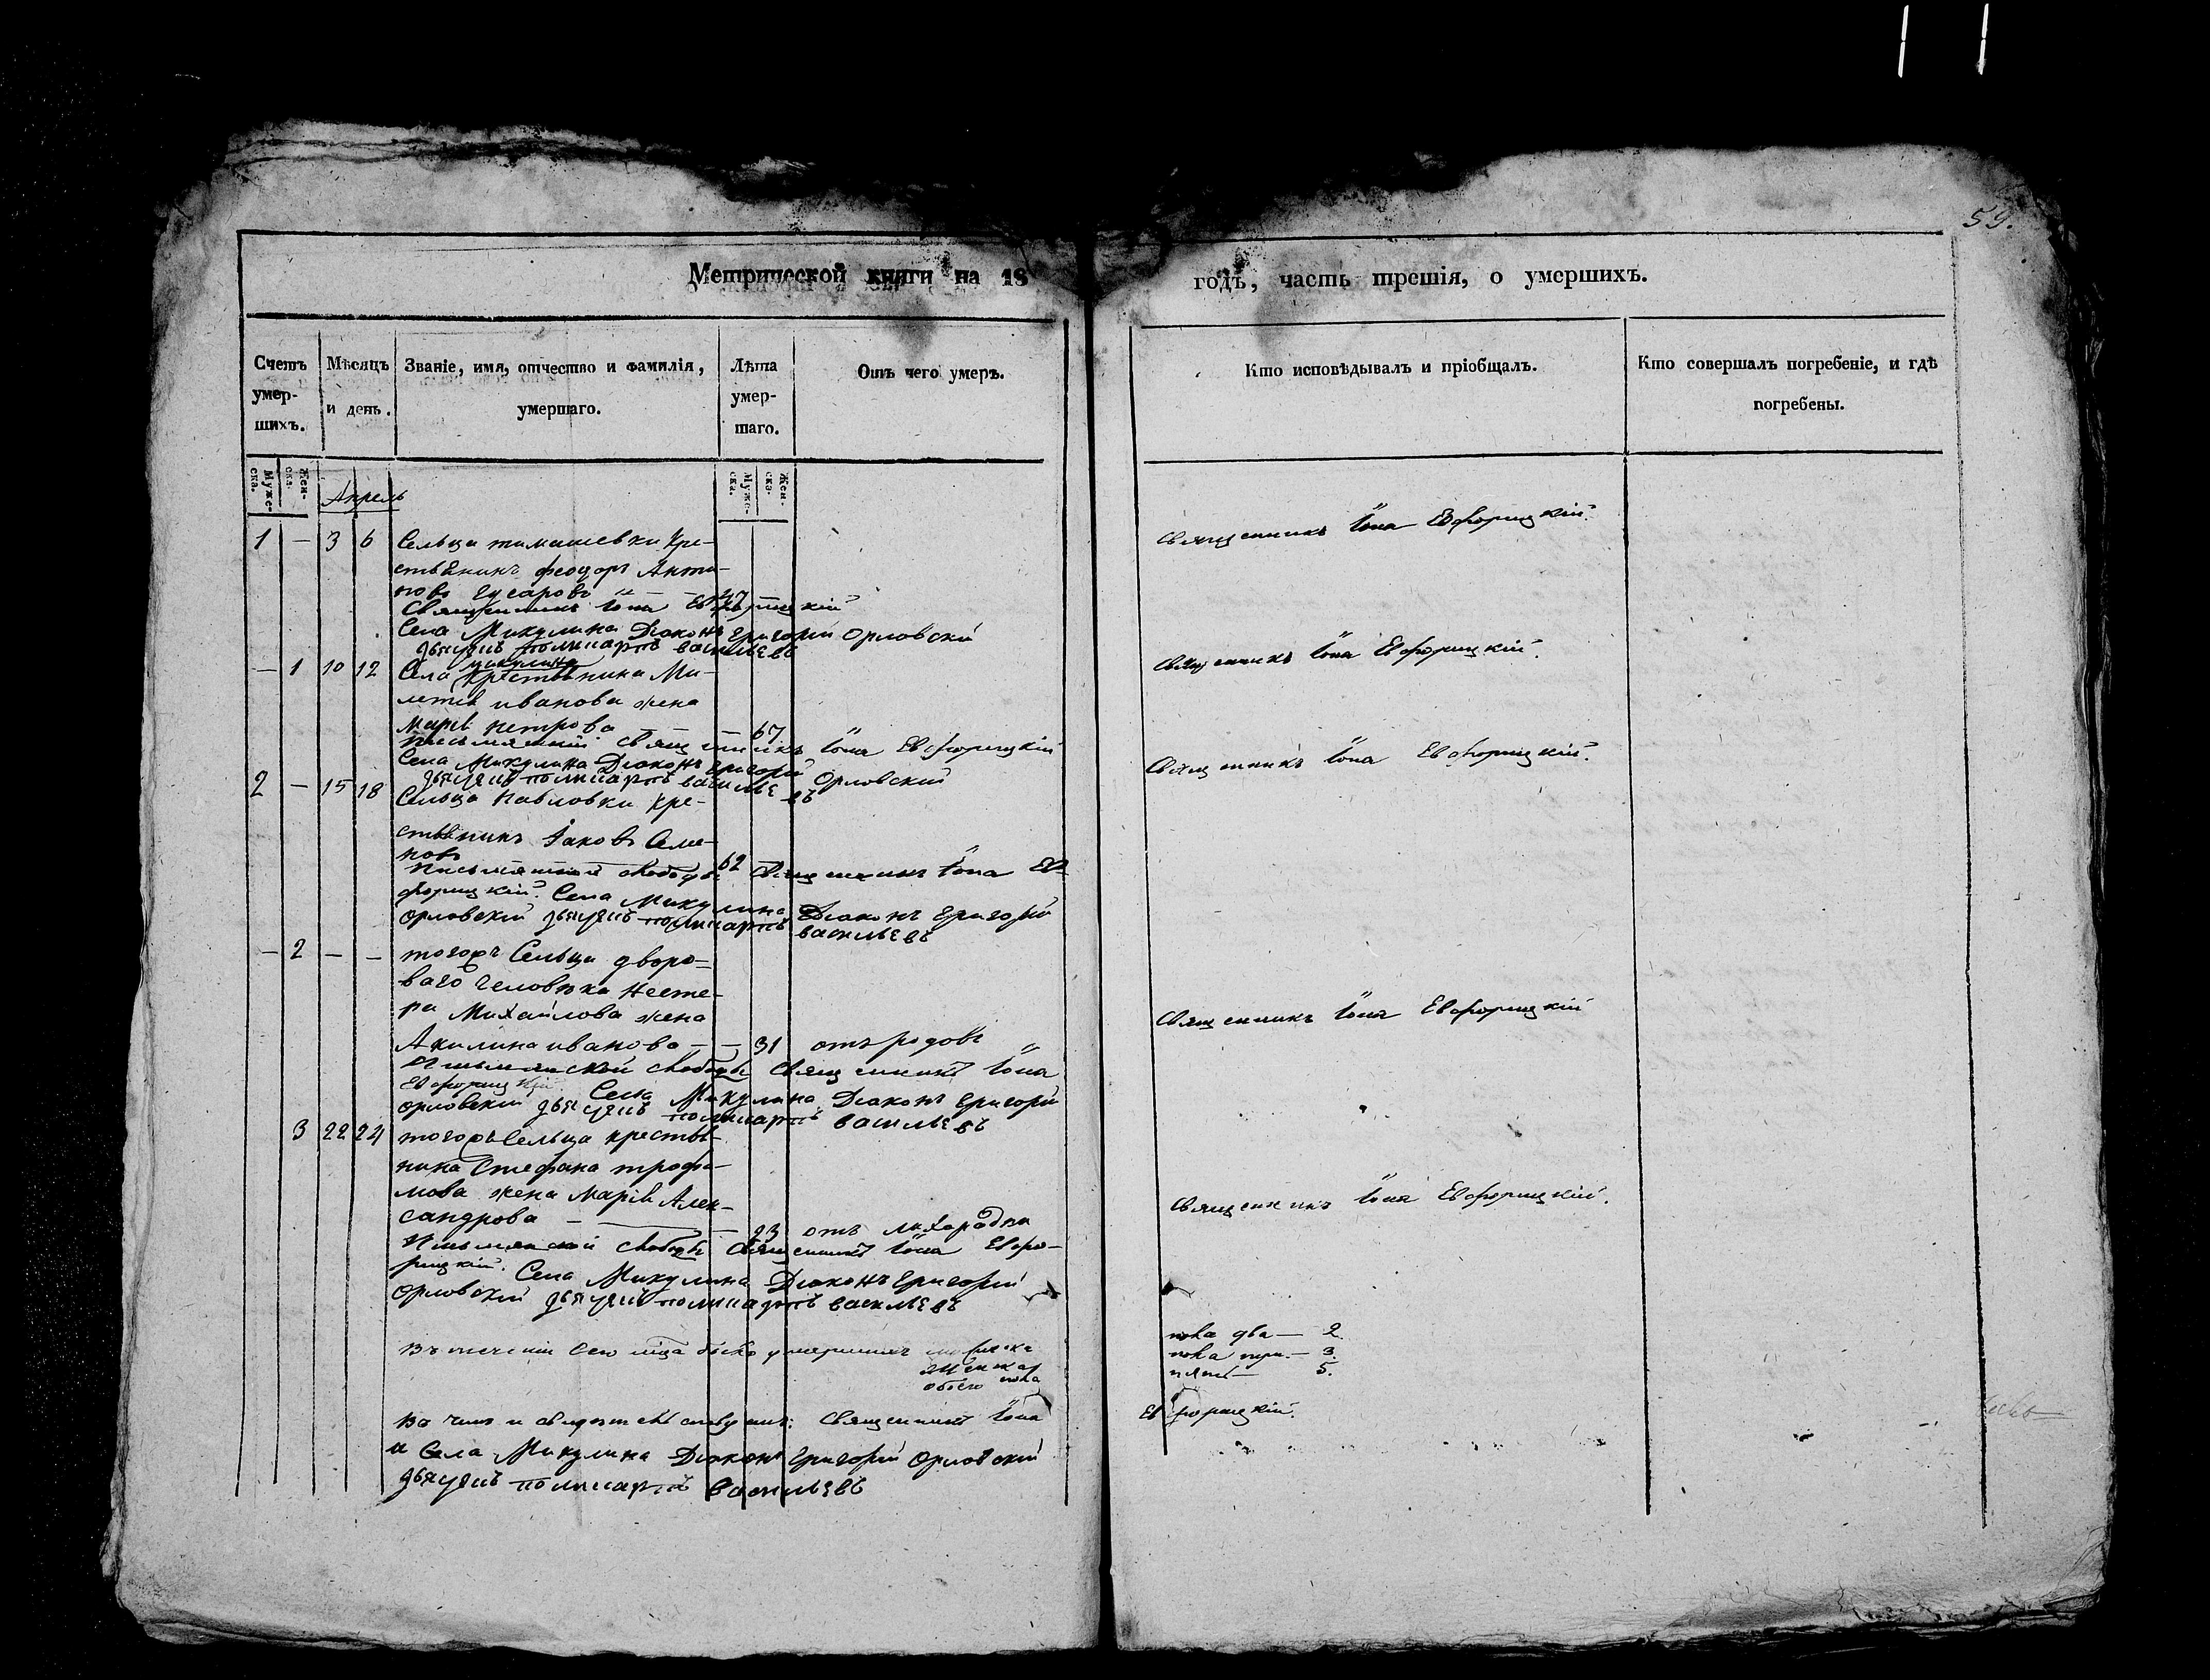 59.
Метрической книги на 18
годъ, часть третія, о умершихъ.
Счетъ умер-шихъ.
Мѣсяцъ и день.
Званіе, имя, отчество и фамилія, умершаго.
Лѣта умер-шаго.
Отъ чего умеръ.
Кто исповѣдывалъ и пріобщалъ.
Кто совершалъ погребеніе, и гдѣ погребены.
Муже-ска.
Жен-ска.
Муже-ска.
Жен-ска.
Апрель
1 — 3 6 Сельца тимашевки Кре-
стьянинъ феодоръ Анти-
повъ Гусаровъ — — 47
Священникъ Іона Евфорицкій
Села Микулина Діаконъ Григорій Орловскій
дьячекъ поликарпъ васильевъ
Священникъ Іона Евфорицкій.
— 1 10 12 Села микулина Крестьянина Ми-
летія иванова жена
Марія петрова — — 67
Священникъ Іона Евфорицкій
Села Микулина Діаконъ Григорій Орловский
дьячекъ поликарпъ васильевъ
Священникъ Іона Евфорицкій.
2 — 15 18 Сельца павловки кре-
стьянинъ Іаковъ Семе-
новъ 62
Священникъ Іона Ев
форицкій. Села Микулина Діаконъ Григорій
Орловскій дьячекъ поликарпъ васильевъ
Священникъ Іона Евфорицкій.
— 2 — — тогожъ Сельца дворо-
ваго человѣка Несте-
ра Михайлова жена
Акилина иванова — — 31 отъ родовъ
слободы Священникъ Іона
Евфорицкій. Села Микулина Діаконъ Григорій
Орловскій дьячекъ поликарпъ васильевъ
Священникъ Іона Евфорицкій
3 22 24 тогожъ Сельца крестья-
нина Стефана трофи-
мова жена Марія Алек-
сандрова — — 23 отъ лихорадки
слободы Священникъ Іона Евфо-
рицкій. Села Микулина Діаконъ Григорій
Орловскій дьячекъ поликарпъ васильевъ
Священникъ Іона Евфорицкій.
Въ теченіи сего мца было умершихъ мужеска
женска
обоего пола
пола два — 2.
пола три — 3.
пять — 5.
Въ чемъ и свидетельствуемъ: Священникъ Іона
Евфорицкій.
и Села Микулина Діаконъ Григорій Орловскій
дьячекъ поликарпъ васильевъ